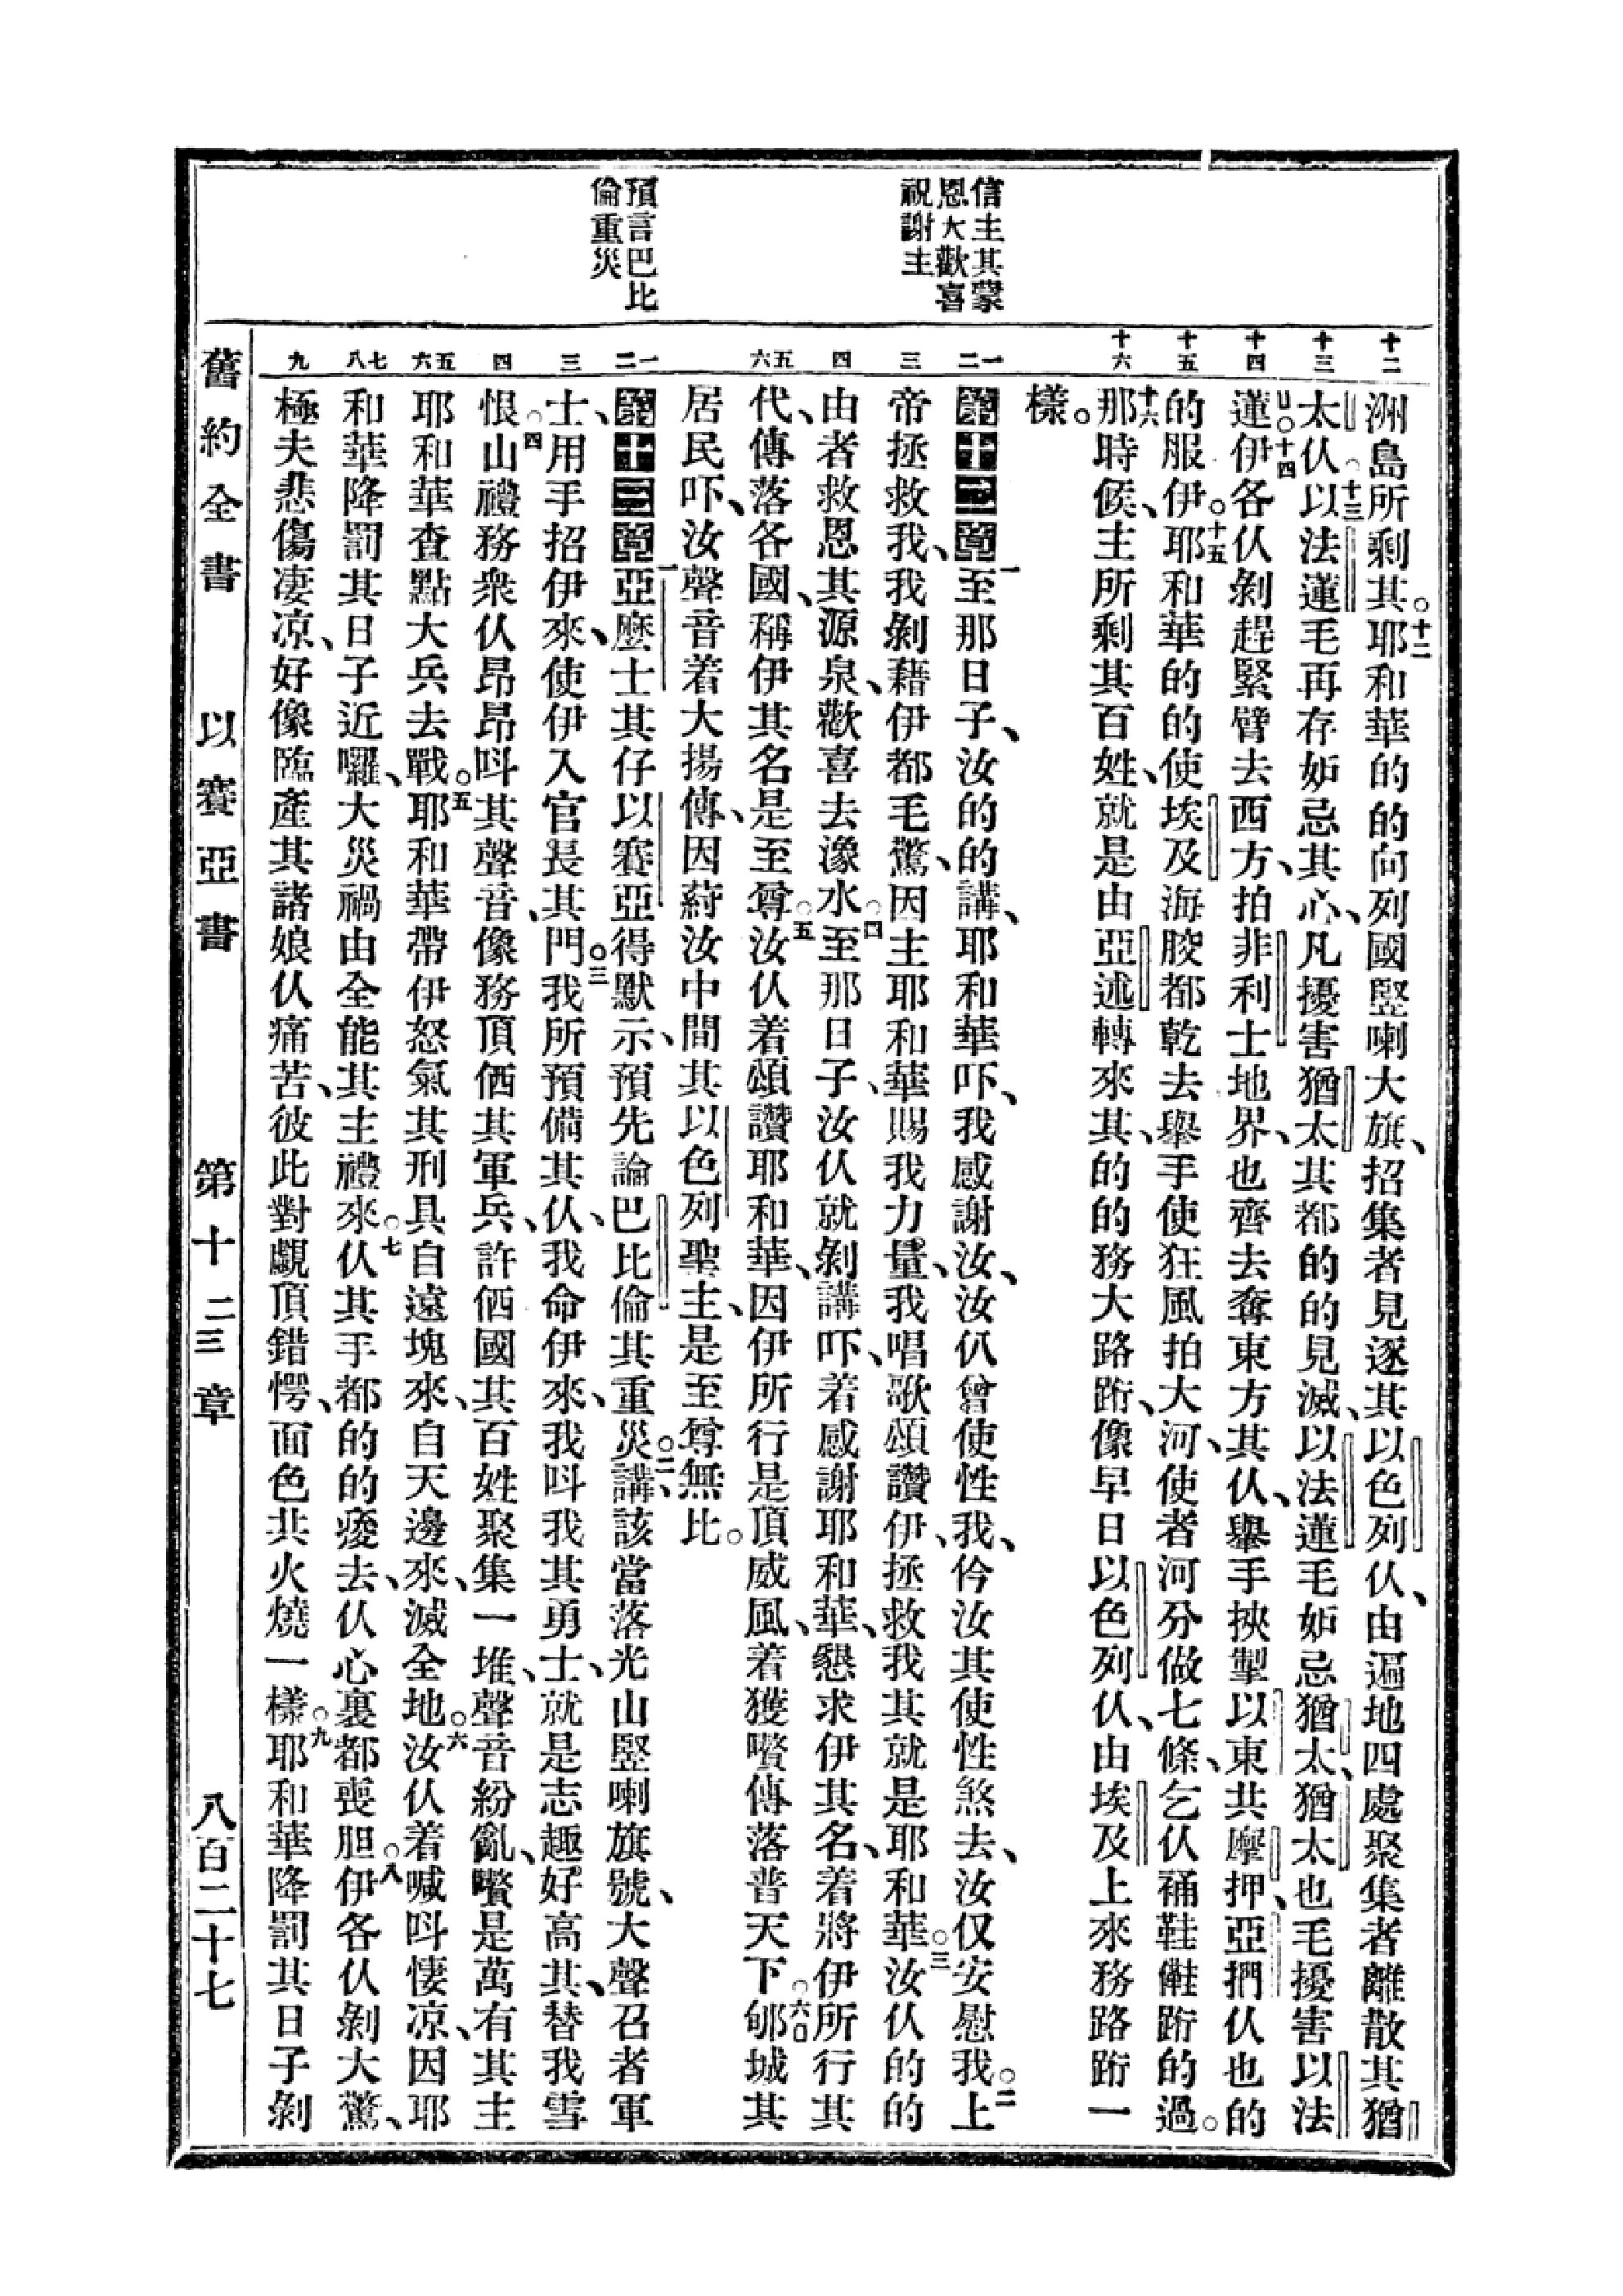 信主其蒙
恩大歡喜
祝謝主
預言巴比
倫重災
十二
十三
十四
十五
十六
一二
三
四
五六
一二
三
四
五六
七八
九
洲島所剩其。十二耶和華的的向列國竪喇大旗、招集者見逐其以色列仈、由遍地四處聚集者離散其猶
太仈。十三以法蓮毛再存妬忌其心、凡擾害猶太其都的的見滅、以法蓮毛妬忌猶太、猶太也毛擾害以法
蓮。十四伊各仈剝趕緊臂去西方、拍非利士地界、也齊去奪東方其仈、舉手挾掣以東共摩押、亞捫仈也的
的服伊。十五耶和華的的使埃及海胶都乾去、舉手使狂風拍大河、使者河分做七條、乞仈䘄鞋儺跨的過。
十六那時候、主所剩其百姓、就是由亞述轉來其、的的務大路跨、像早日以色列仈、由埃及上來務路跨一
樣。
第十二章一至那日子、汝的的講、耶和華吓、我感謝汝、汝仈曾使性我、伶汝其使性煞去、汝仅安慰我。二上
帝拯救我、我剝藉伊都毛驚、因主耶和華賜我力量、我唱歌頌讚伊、拯救我其就是耶和華。三汝仈的的
由者救恩其源泉、歡喜去潒水。四至那日子、汝仈就剝講吓、着感謝耶和華、懇求伊其名、着將伊所行其
代、傳落各國、稱伊其名是至尊。五汝仈着頌讚耶和華、因伊所行是頂威風、着獲嚽傳落普天下。六郇城其
居民吓、汝聲音着大揚傳、因蒔汝中間其以色列聖主、是至尊無比。
第十三章一亞麼士其仔以賽亞得默示、預先論巴比倫其重災。二講、該當落光山竪喇旗號、大聲召者軍
士、用手招伊來、使伊入官長其門。三我所預備其仈、我命伊來、我呌我其勇士、就是志趣好高其、替我雪
恨。四山禮務衆仈昂昂呌其聲音、像務頂価其軍兵、許価國其百姓聚集一堆、聲音紛亂、嚽是萬有其主
耶和華查點大兵去戰。五耶和華帶伊怒氣其刑具自遠塊來、自天邊來、滅全地。六汝仈着喊呌悽凉、因耶
和華降罰其日子近囉、大災禍由全能其主禮來。七仈其手都的的痠去、仈心裏都喪胆。八伊各仈剝大驚、
極夫悲傷凄凉、好像臨產其諸娘仈痛苦、彼此對覷頂錯愕、面色共火燒一樣。九耶和華降罰其日子剝
舊約全書　以賽亞書　第十二三章　八百二十七